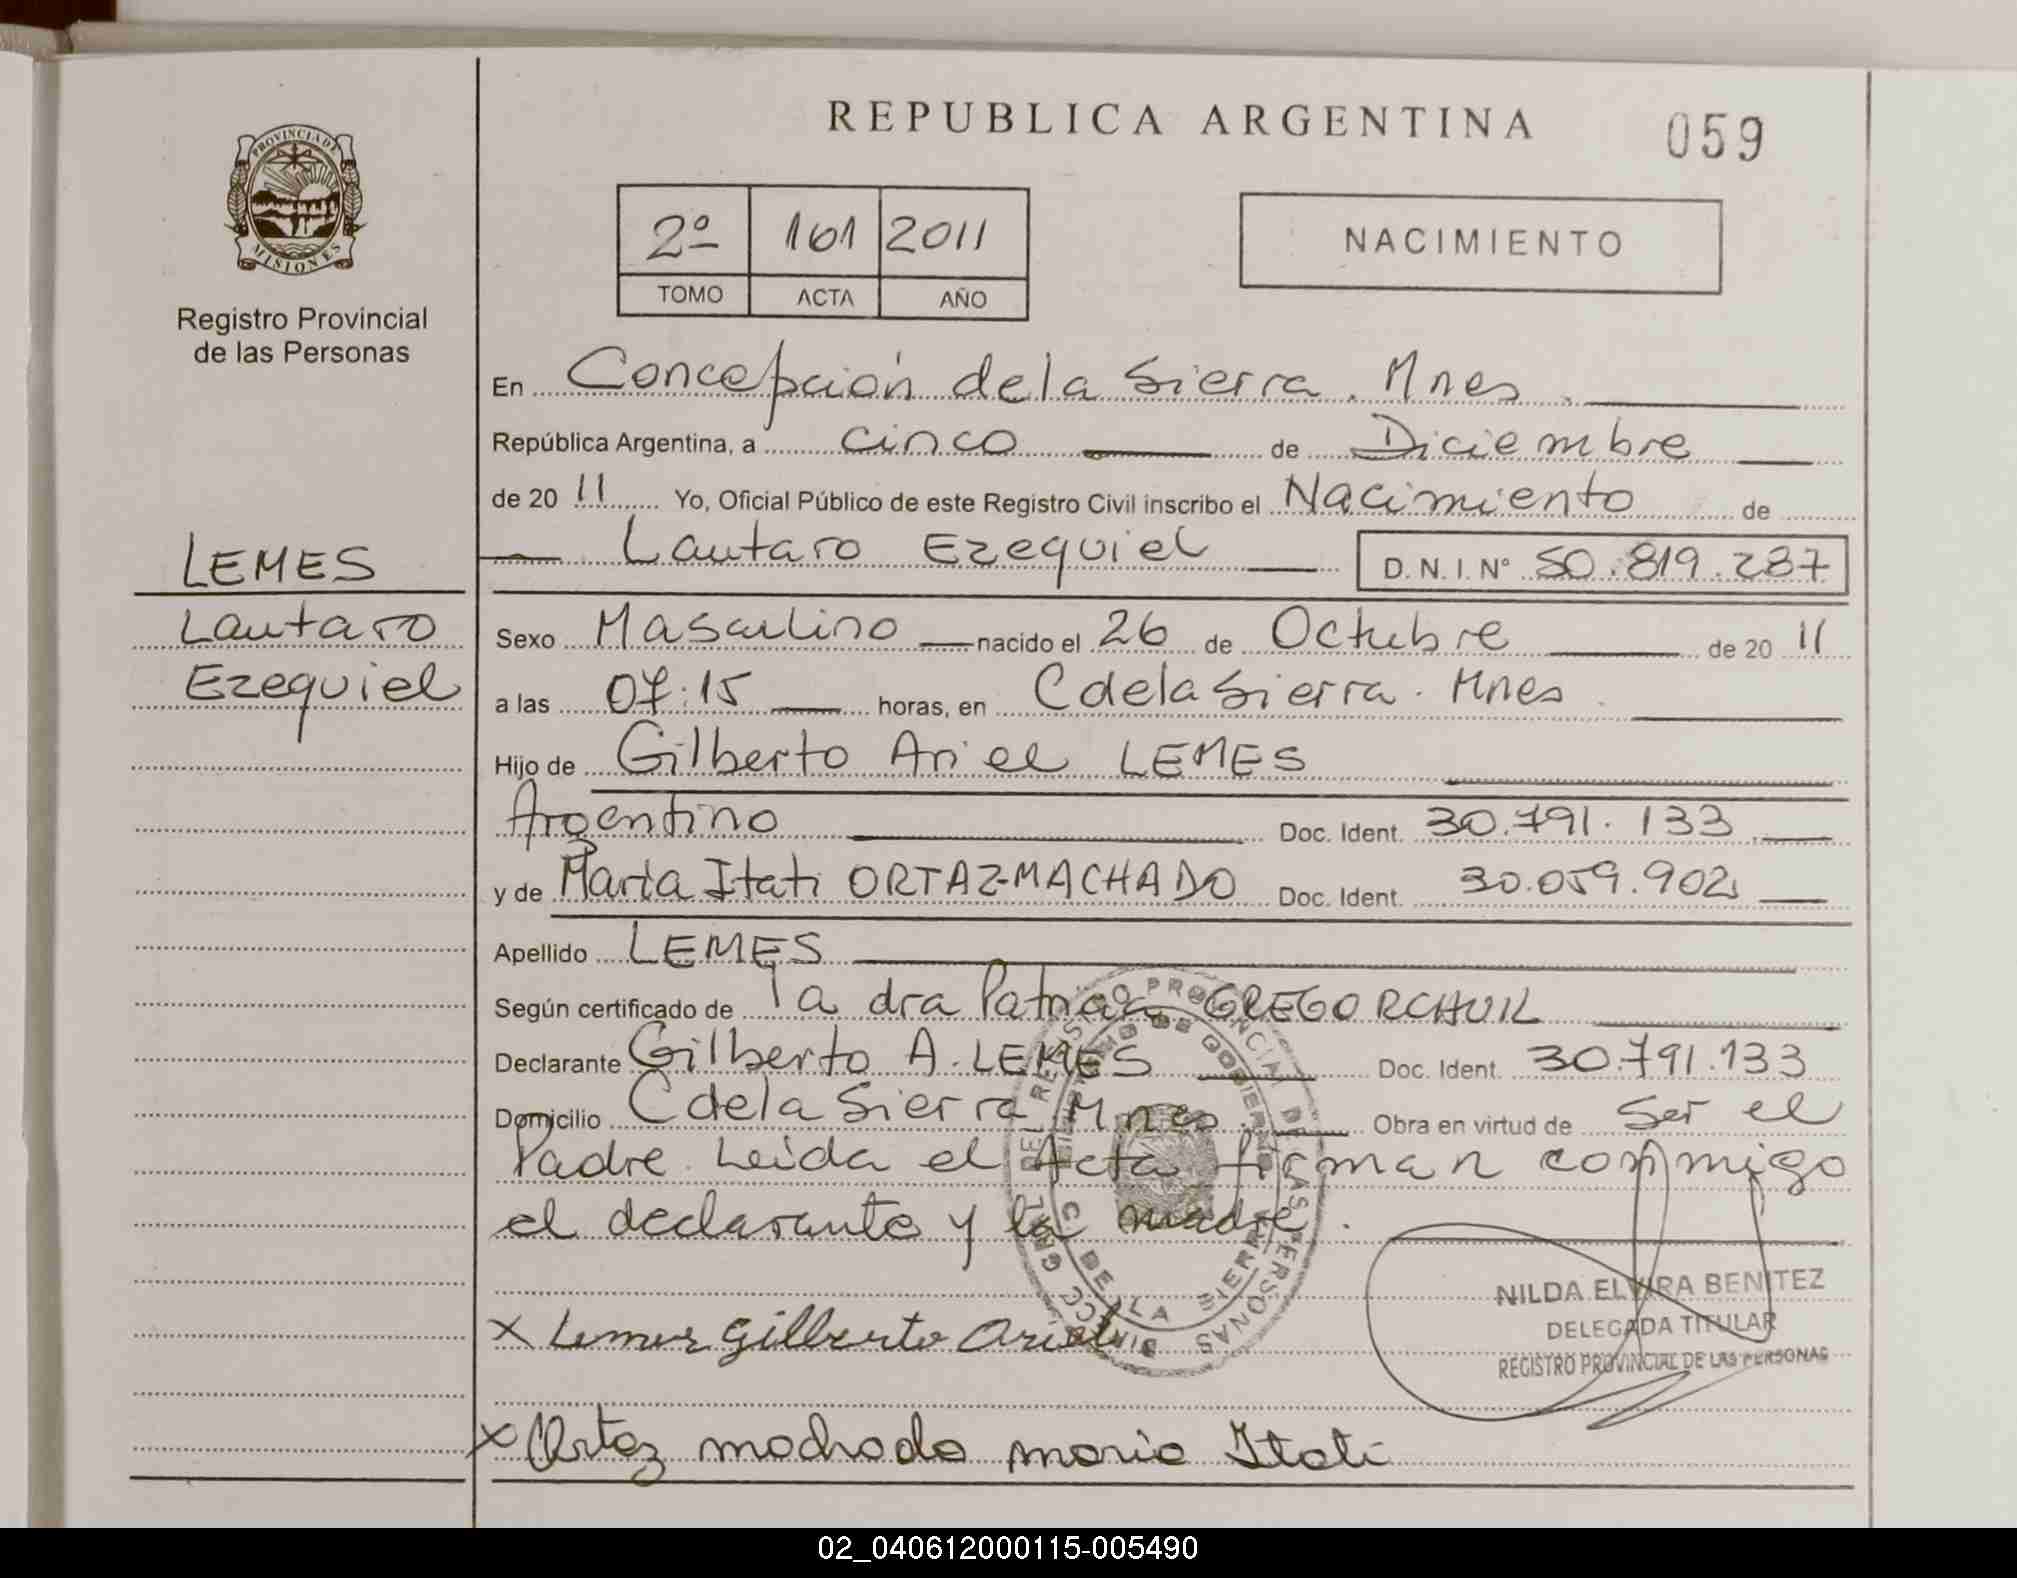 REPUBLICA ARGENTINA
059
PROVINCIA DE MISIONES
Registro Provincial
de las Personas
2º 161 2011
TOMO ACTA AÑO
NACIMIENTO
En Concepción de la Sierra. Mnes.
República Argentina, a cinco de Diciembre
de 2011 Yo, Oficial Público de este Registro Civil inscribo el Nacimiento de
Lautaro Ezequiel D.N.I. Nº 50.819.287
LEMES
Lautaro
Ezequiel
Sexo Masculino nacido el 26 de Octubre de 2011
a las 07:15 horas, en C de la Sierra. Mnes.
Hijo de Gilberto Ariel LEMES
Argentino Doc. Ident. 30.791.133
y de María Itati ORTAZ-MACHADO Doc. Ident. 30.059.902
Apellido LEMES
Según certificado de la dra Patricia GREGORCHUIL
Declarante Gilberto A. LEMES Doc. Ident. 30.791.133
Domicilio C de la Sierra Mnes. Obra en virtud de ser el
Padre. Leida el Acta firman conmigo
el declarante y la madre.
NILDA ELVIRA BENITEZ
DELEGADA TITULAR
REGISTRO PROVINCIAL DE LAS PERSONAS
x Lemes Gilberto Ariel
x Ortaz machado maria Itati
02_040612000115-005490